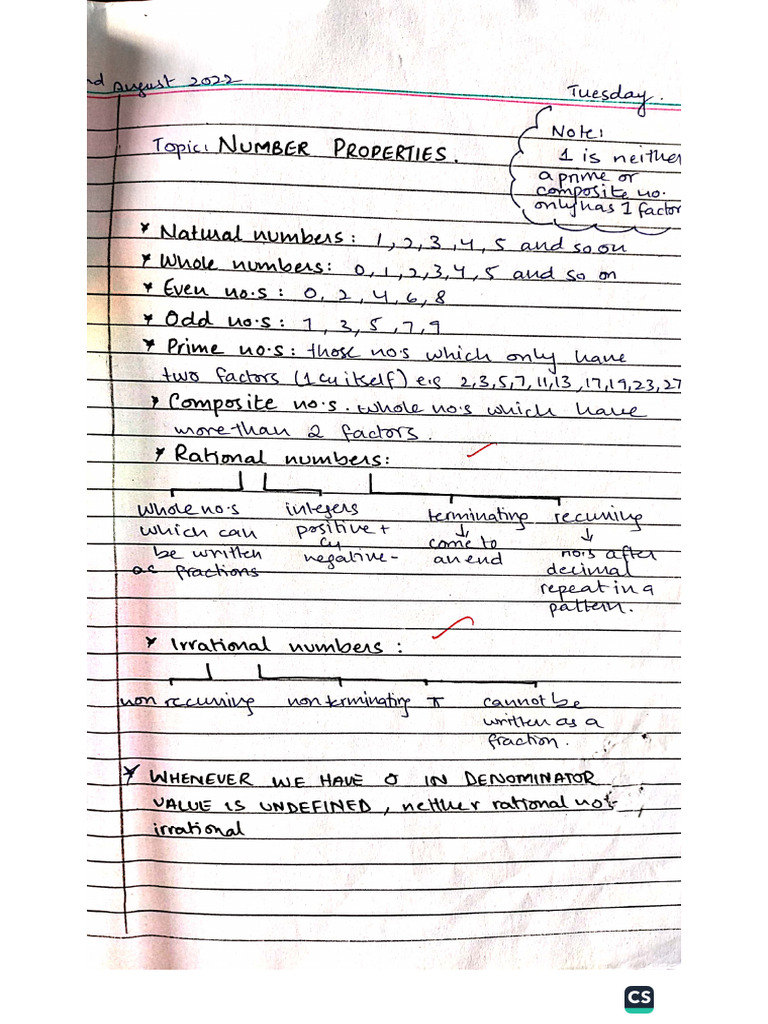 nd August 2022
Tuesday.
Note:
1 is neither
a prime or
composite no.
only has 1 factor
Topic: NUMBER PROPERTIES.
* Natural numbers: 1, 2, 3, 4, 5 and so on
* Whole numbers: 0, 1, 2, 3, 4, 5 and so on
* Even no.s: 0, 2, 4, 6, 8
* Odd no.s: 1, 3, 5, 7, 9
* Prime no.s: those no.s which only have
two factors (1 & itself) e.g 2,3,5,7,11,13,17,19,23,27
* Composite no.s. whole no.s which have
more than 2 factors.
* Rational numbers:
whole no.s integers terminating recurring
which can positive + ↓ ↓
be written & come to no.s after
as fractions negative - an end decimal
repeat in a
pattern.
* Irrational numbers:
non recurring non terminating π cannot be
written as a
fraction.
* WHENEVER WE HAVE 0 IN DENOMINATOR
VALUE IS UNDEFINED, neither rational not
irrational
CS